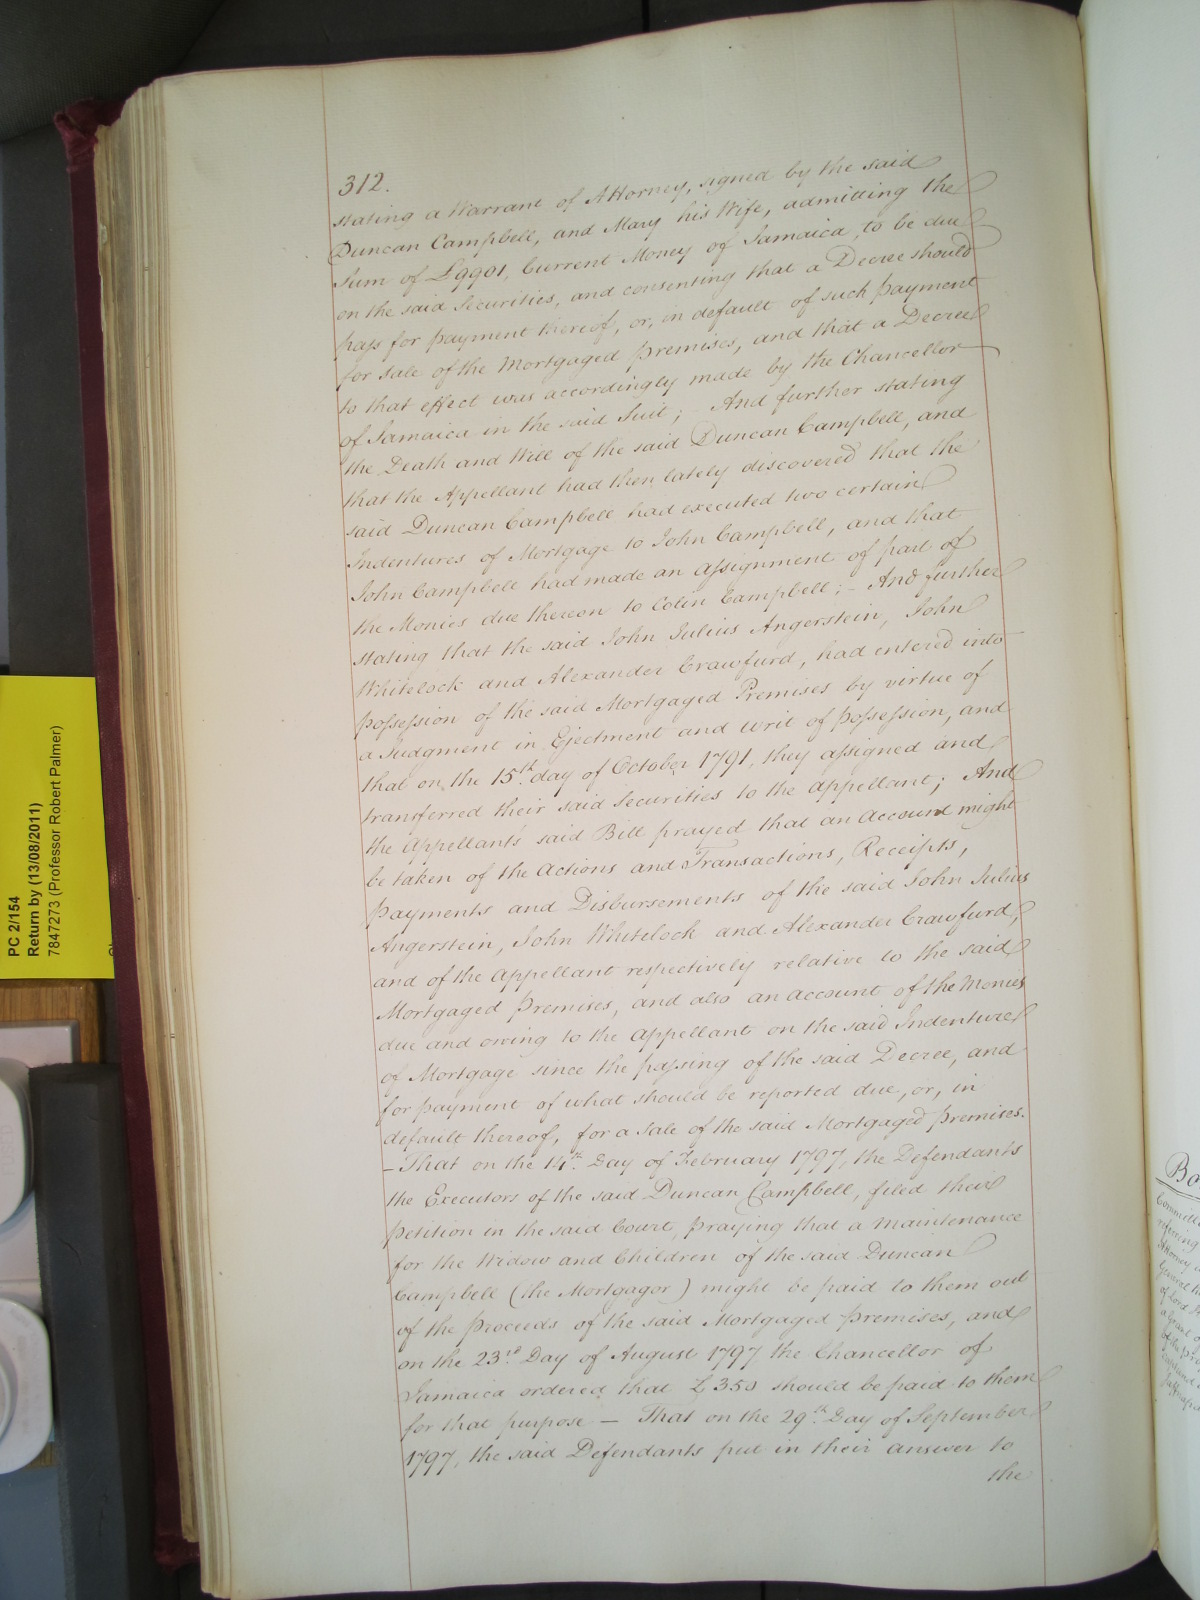 312.
stating a Warrant of Attorney, signed by the said
Duncan Campbell, and Mary his Wife, admitting the
Sum of £9901, Current Money of Jamaica, to be due
on the said Securities, and consenting that a Decree should
pass for payment thereof, or, in default of such payment
for sale of the Mortgaged premises, and that a Decree
to that effect was accordingly made by the Chancellor
of Jamaica in the said Suit; - And further stating
the Death and Will of the said Duncan Campbell, and
that the Appellant had then lately discovered that the
said Duncan Campbell had executed two certain
Indentures of Mortgage to John Campbell, and that
John Campbell had made an assignment of part of
the Monies due thereon to Colin Campbell; - And further
stating that the said John Julius Angerstein, John
Whitelock and Alexander Crawfurd, had entered into
possession of the said Mortgaged Premises by virtue of
a Judgment in Ejectment and Writ of possession, and
that on the 15th. day of October 1791, they assigned and
transferred their said Securities to the appellant; And
the Appellant's said Bill prayed that an Account might
be taken of the Actions and Transactions, Receipts,
payments and Disbursements of the said John Julius
Angerstein, John Whitelock and Alexander Crawfurd,
and of the appellant respectively relative to the said
Mortgaged premises, and also an account of the Monies
due and owing to the appellant on the said Indenture
of Mortgage since the passing of the said Decree, and
for payment of what should be reported due, or, in
default thereof, for a sale of the said Mortgaged premises.
- That on the 14th. Day of February 1797, the Defendants
the Executors of the said Duncan Campbell, filed their
petition in the said Court, praying that a maintenance
for the Widow and Children of the said Duncan
Campbell (the Mortgagor) might be paid to them out
of the proceeds of the said Mortgaged premises, and
on the 23rd Day of August 1797 the Chancellor of
Jamaica ordered that £350 should be paid to them
for that purpose - That on the 29th. Day of September
1797, the said Defendants put in their answer to
the
PC 2/154
Return by (13/08/2011)
7847273 (Professor Robert Palmer)
Bo